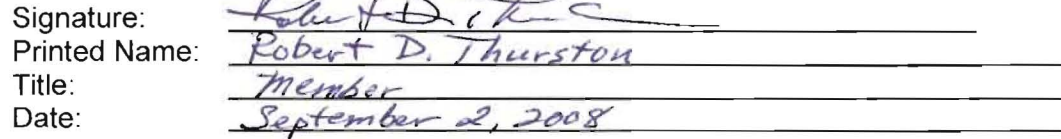 Signature: Robert D. Thurston
Printed Name: Robert D. Thurston
Title: Member
Date: September 2, 2008